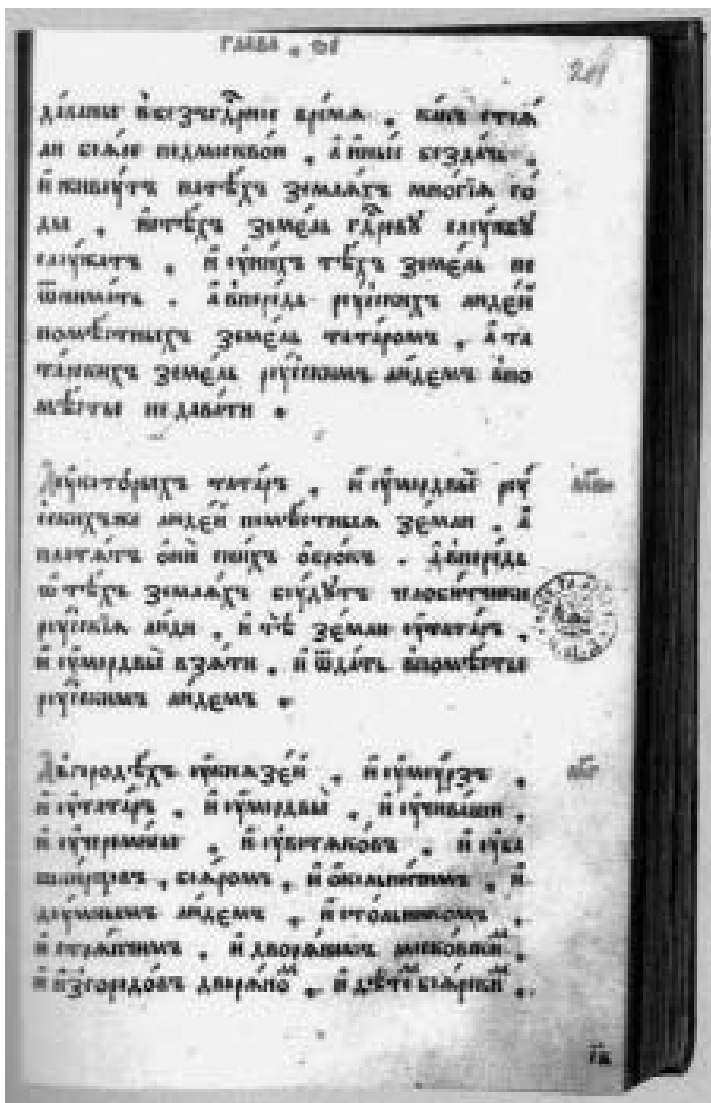 глава . ѕ҃і
да́ваны в̾безъгдⷭ҇рное вре́мѧ . ка́къ стоѧ́
ли боѧ́ре подмоскво́й . а҆ и҆ны́е безда́чь .
и҆ живꙋ́тъ натѣ́хъ землѧ́хъ мно́гїѧ го́
ды . и҆стѣ́хъ земе́ль гдⷭ҇ревꙋ слꙋ́жбꙋ
слꙋ́жатъ . и҆ ᲂу҆ни́хъ тѣ́хъ земе́ль не
ѿнима́ть . а҆ впере́дь рꙋ́сскихъ люде́й
помѣ́стныхъ земе́ль тата́ромъ . а҆ та
та́рскихъ земе́ль рꙋ́сскимъ лю́демъ впо
мѣ́стье не дава́ти .
А҆ᲂу҆кото́рыхъ тата́ръ . и҆ ᲂу҆мордвы̀ рꙋ́
сскихъже люде́й помѣ́стныѧ зе́мли . а҆
платѧ́тъ ѻ҆нѝ сни́хъ ѻ҆бро́къ . а҆впере́дь
ѡ҆ тѣ́хъ землѧ́хъ бꙋ́дꙋтъ челоби́тчики
рꙋ́сскїѧ лю́ди . и҆ тѣ̀ зе́мли ᲂу҆тата́ръ .
и҆ ᲂу҆мордвы̀ взѧ́ти . и҆ ѿда́ть впомѣ́стье
рꙋ́сскимъ лю́демъ .
м҃в
А҆вгородѣ́хъ ᲂу҆кнѧзе́й . и҆ ᲂу҆мꙋ́рзъ .
и҆ ᲂу҆тата́ръ . и҆ ᲂу҆мордвы̀ . и҆ ᲂу҆чюва́ши .
и҆ ᲂу҆череми́сы . и҆ ᲂу҆вотѧко́въ . и҆ ᲂу҆ба
ши́рцовъ . боѧ́ромъ . и҆ ѻ҆ко́льничимъ . и҆
дꙋ́мнымъ лю́демъ . и҆ сто́льникомъ .
и҆ стрѧ́пчимъ . и҆ дворѧ́номъ моско́вскиⷨ .
и҆ и҆згородо́въ дворѧ́ноⷨ . и҆ дѣ́теⷨ боѧ́рскиⷨ .
м҃г